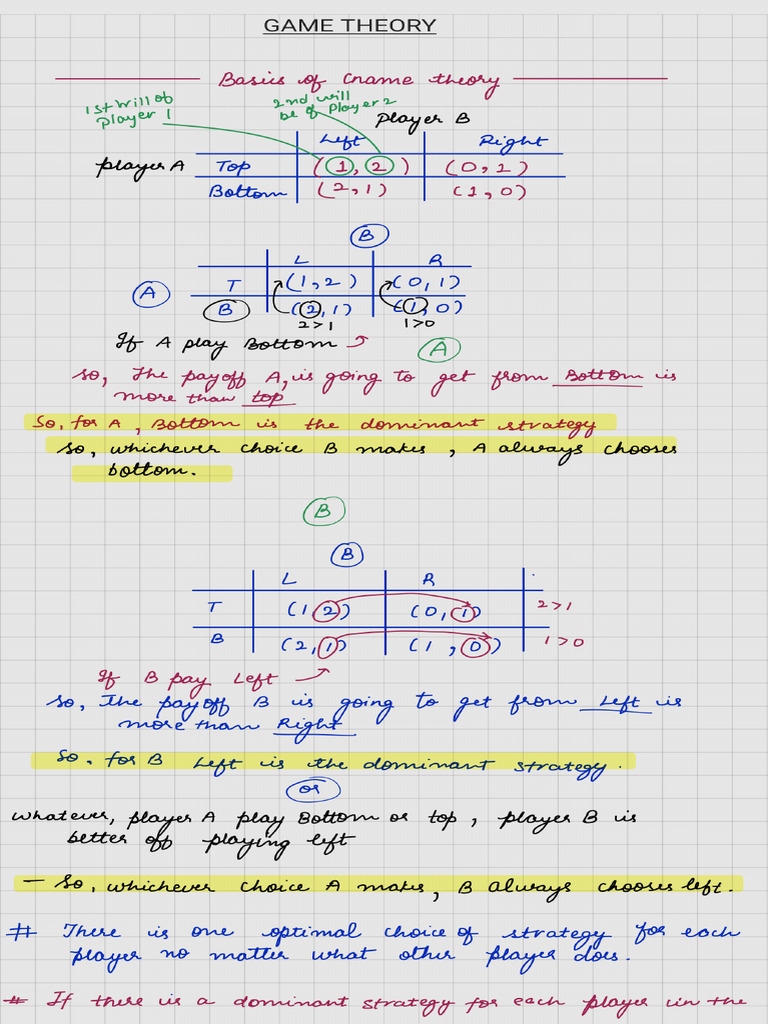 GAME THEORY
Basics of Game theory
1st will of
player 1
2nd will
be of Player 2
player B
Left Right
player A Top (1, 2) (0, 1)
Bottom (2, 1) (1, 0)
B
L R
A T (1, 2) (0, 1)
B (2, 1) (1, 0)
2>1 1>0
If A play Bottom
A
So, The payoff A, is going to get from Bottom is
more than top
So, for A, Bottom is the dominant strategy
So, whichever choice B makes, A always chooses
bottom.
B
B
L R
T (1, 2) (0, 1) 2>1
B (2, 1) (1, 0) 1>0
If B pay Left
So, The payoff B is going to get from Left is
more than Right
So, for B Left is the dominant strategy.
or
whatever, player A play Bottom or top, player B is
better off playing left
- So, whichever choice A makes, B always chooses left.
# There is one optimal choice of strategy for each
player no matter what other player does.
# If there is a dominant strategy for each player in the